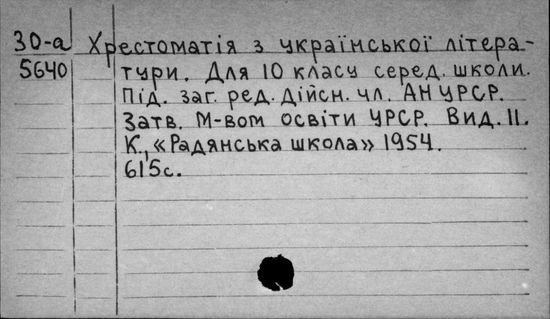 30-а Хрестоматія з української літера-
5640 тури. Для 10 класу серед. школи.
Під. заг. ред. Дійсн. чл. АН УРСР.
Затв. М-вом освіти УРСР. Вид. 11.
К., «Радянська школа» 1954.
615с.